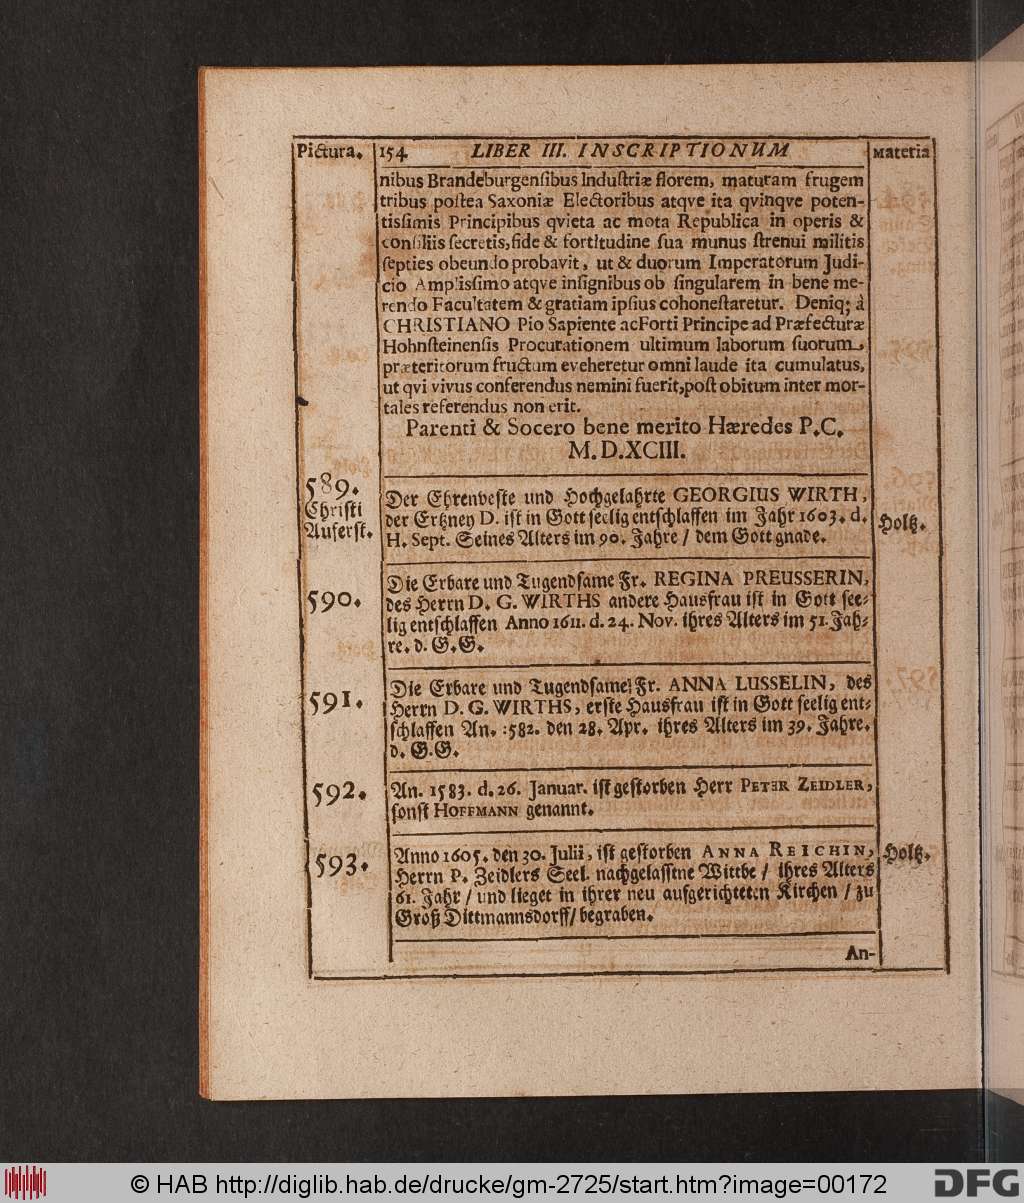 Pictura. 154 LIBER III. INSCRIPTIONUM Materia
nibus Brandeburgensibus Industriæ florem, maturam frugem
tribus postea Saxoniæ Electoribus atqve ita qvinqve poten-
tissimis Principibus qvieta ac mota Republica in operis &
consiliis secretis, fide & fortitudine sua munus strenui militis
septies obeundo probavit, ut & duorum Imperatorum Judi-
cio Amplissimo atqve insignibus ob singularem in bene me-
rendo Facultatem & gratiam ipsius cohonestaretur. Deniq; à
CHRISTIANO Pio Sapiente ac Forti Principe ad Præfecturæ
Hohnsteinensis Procurationem ultimum laborum suorum,
præteritorum fructum eveheretur omni laude ita cumulatus,
ut qvi vivus conferendus nemini fuerit, post obitum inter mor-
tales referendus non erit.
Parenti & Socero bene merito Hæredes P.C.
M.D.XCIII.
589.
Christi
Auferst.
Der Ehrenveste und Hochgelahrte GEORGIUS WIRTH,
der Ertzney D. ist in Gott seelig entschlaffen im Jahr 1603. d.
H. Sept. Seines Alters im 90. Jahre / dem Gott gnade.
Holtz.
590.
Die Erbare und Tugendsame Fr. REGINA PREUSSERIN,
des Herrn D. G. WIRTHS andere Hausfrau ist in Gott see-
lig entschlaffen Anno 1611. d. 24. Nov. ihres Alters im 51. Jah-
re. d. G. G.
591.
Die Erbare und Tugendsame Fr. ANNA LUSSELIN, des
Herrn D. G. WIRTHS, erste Hausfrau ist in Gott seelig ent-
schlaffen An. :582. den 28. Apr. ihres Alters im 39. Jahre.
d. G. G.
592.
An. 1583. d. 26. Januar. ist gestorben Herr PETER ZEIDLER,
sonst HOFFMANN genannt.
593.
Anno 1605. den 30. Julii, ist gestorben ANNA REICHIN,
Herrn P. Zeidlers Seel. nachgelasstne Wittbe / ihres Alters
61. Jahr / und lieget in ihrer neu aufgerichteten Kirchen / zu
Größ Dittmannsdorff / begraben.
Holtz.
An-
© HAB http://diglib.hab.de/drucke/gm-2725/start.htm?image=00172
DFG